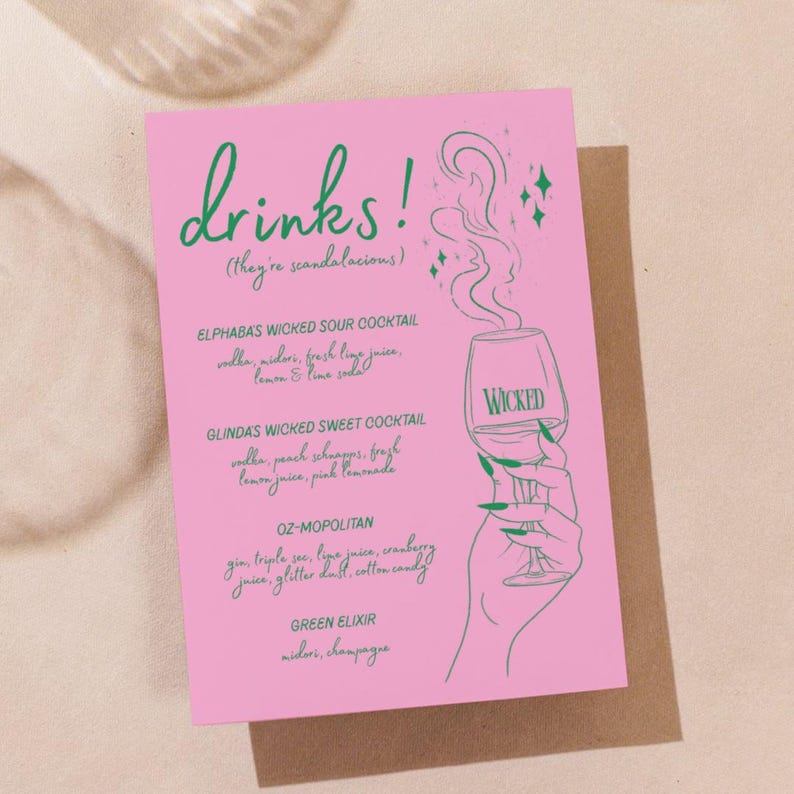 drinks!
(they're scandalacious)
ELPHABA'S WICKED SOUR COCKTAIL
vodka, midori, fresh lime juice,
lemon & lime soda
WICKED
GLINDA'S WICKED SWEET COCKTAIL
vodka, peach schnapps, fresh
lemon juice, pink lemonade
OZ-MOPOLITAN
gin, triple sec, lime juice, cranberry
juice, glitter dust, cotton candy
GREEN ELIXIR
midori, champagne